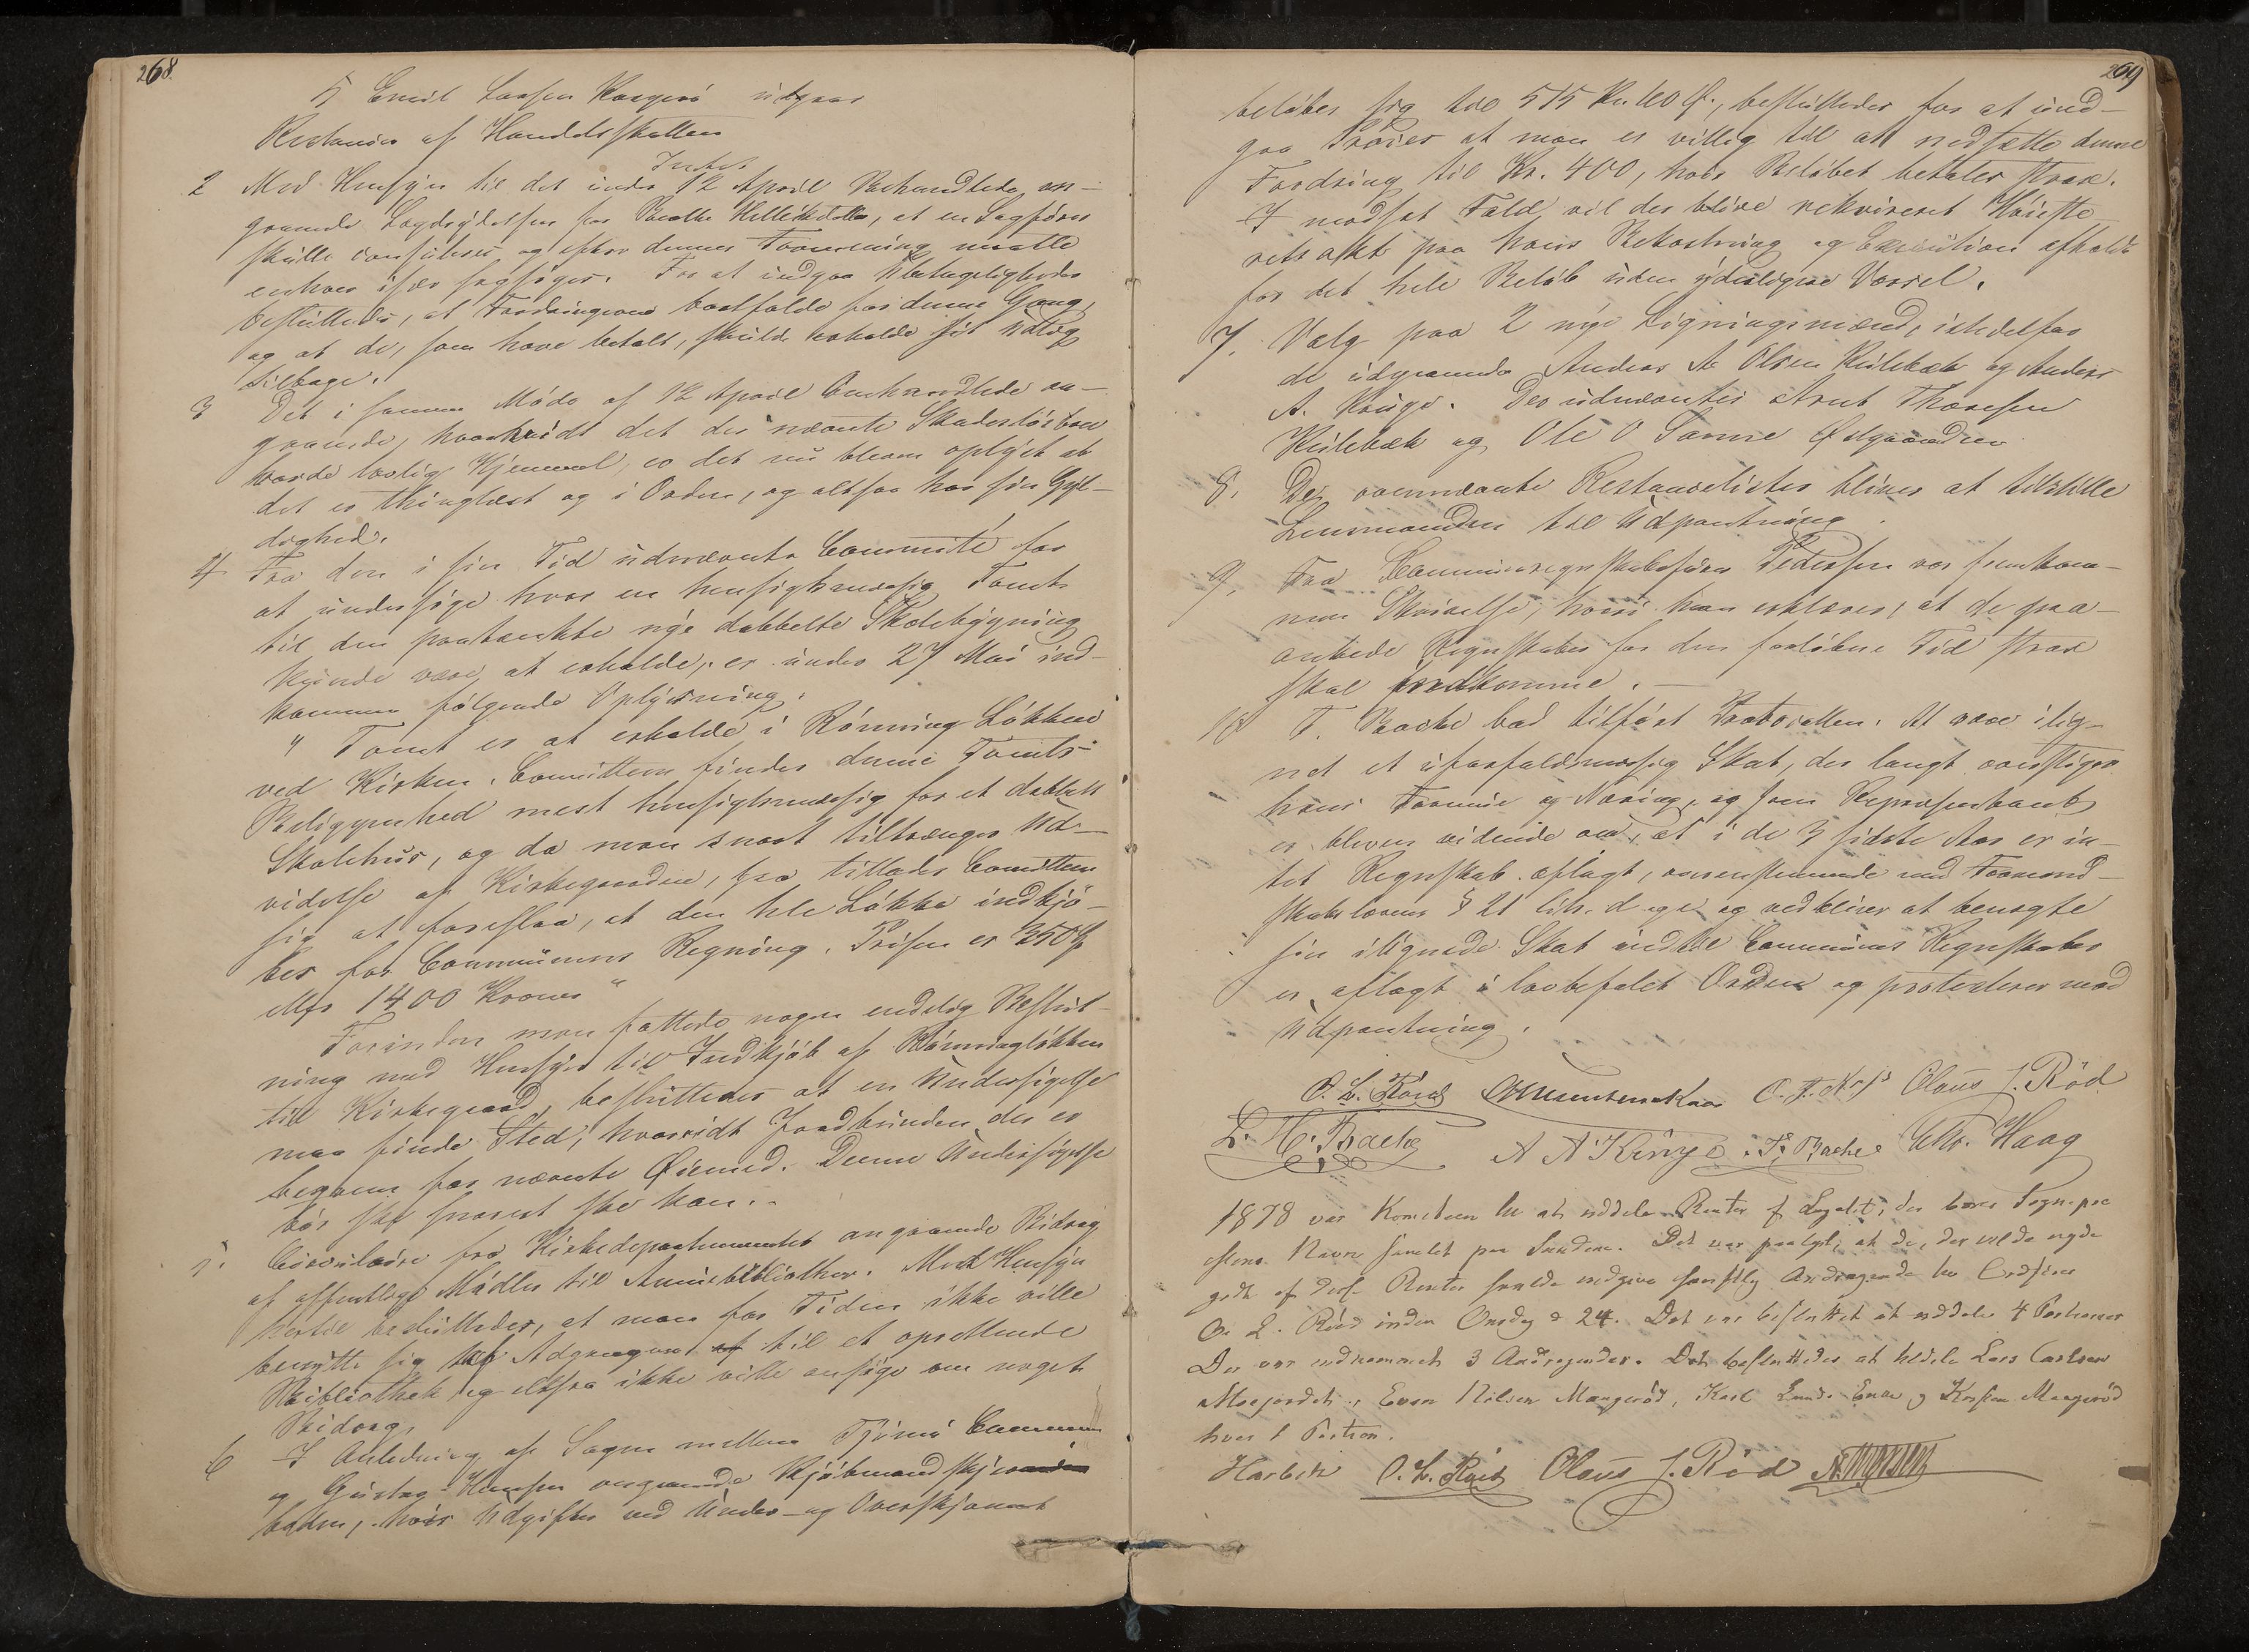 268.
5 Emil Larsen Kaagerö udgaar
Restancer af Handelsskatten
Intet
2 Med Hensyn til det under 12 April Behandlede, an-
gaaende Lægdsydelsen for Berthe, at en Sagförer
skulle consuleres og efter dennes Formening maatte
enhver især sagsöges. For at undgaa Ubehageligheder
besluttedes, at Fordringerne bortfalde for denne Gang,
og at de, som have betalt, skulde erholde sit Udlæg
tilbage.
3 Det i samme Möde af 12 April Omhandlede an-
gaaende, hvorvidt det der nævnte Skadeslösbrev
havde lovlig Hjemmel, er det nu bleven oplyst at
det er thinglæst og i Orden, og altsaa har sin Gyl-
dighed.
4 Fra den i sin Tid udnævnte Committé for
at undersöge hvor en hensigtsmæssig Tomt
til den paatænkte nye dobbelte Skolebygning
kunde være at erholde, er under 27 Mai ind-
kommen fölgende Oplysning:
" Tomt er at erholde i Rönning Lökken
ved Kirken. Comitteen finder denne Tomts
Beliggenhed mest hensigtsmæssig for et dobbelt
Skolehus, og da man snart tiltrænger Ud-
videlse af Kirkegaarden, saa tillader Comitteen
sig at foreslaa, at den hele Lökke indkjö-
bes for Communens Regning. Prisen er 350 Spd
eller 1400 Kroner "
Forinden man fattede nogen endelig Beslut-
ning med Hensyn til Indkjöb af Rönninglökken
til Kirkegaard, besluttedes at en Undersögelse
maa finde Sted, hvorvidt Jordbunden der er
beqvem for nævnte Öiemed. Denne Undersögelse
bör ske snarest ske kan.
5. Circulære fra Kirkedepartementet angaaende Bidrag
af offentlige Midler til Almuebibliotheker. Med Hensyn
hertil besluttedes, at man for Tiden ikke ville
benytte sig af Adgangen til et oprettende
Bibliothek og altsaa ikke ville ansöge om noget
Bidrag.
6 I Anledning af Sagen mellem Tjömö Commune
og Gustav Hansen angaaende Kjöbmandskjer
hvis Udgifter ved Under- og Overskjönnet
269
belöber sig til 515 Kr. 40 Ö., besluttedes for at und-
gaa Proces at man er villig til at nedsætte denne
Fordring til Kr. 400, hvis Belöbet betales strax.
I modsat Fald vil der blive rekvireret Höieste-
rets akt paa hans Bekostning og Execution afholdt
for det hele Belöb uden yderligere Varsel.
7. Valg paa 2 nye Ligningsmænd, istedetfor
de udgaaende Anders A Olsen Kulebæk og Anders
A. Kruge. Der udnævntes Arnt Thoresen
Kulebæk og Ole O Sonne Östgaarden
8. De ovennævnte Restancelister bliver at tilstille
Lensmanden til Udpantning.
9. Fra Communeregnskabsförer Pedersen var fremkom-
men Skrivelse, hvori han erklærer, at de paa-
ankede Regnskaber for den forlöbne Tid strax
skal fremkomme. —
10 F. Bache bad tilfört Protocollen: At være ilig-
net et uforholdsmæssig Skat, der langt overstiger
hans Formue og Næring, og som Repræsentant
er bleven vidende om, at i de 3 sidste Aar er in-
tet Regnskab aflagt, overensstemmende med Formand-
skabslovens § 21 lit. d og e og vedbliver at benegte
sin ilignede Skat indtil Communens Regnskaber
er aflagt i lovbefalet Orden og protesterer mod
Udpantning.
O. L. Röed O. F. Olaus J. Röd
L. H. Bache A A Kruge F. Bache Chr. Haag
1878 var Komiteen til at uddele Renter af Legatet, der bærer Sognepræ
stens Navn samlet paa Sundene. Det var paalyst, at de, der vilde nyde
godt af disse Renter skulde indgive skriftlig Andragende til Ordförer
O. L. Röed inden Onsdag d 24. Det var besluttet at uddele 4 Portioner
Der var indkommet 3 Andragender. Det besluttedes at tildele Lars Carlsen
Moejordet, Even Nilsen Maageröd, Karl Lunde og Maageröd
hver 1 Portion.
O. L. Röed Olaus J. Röd